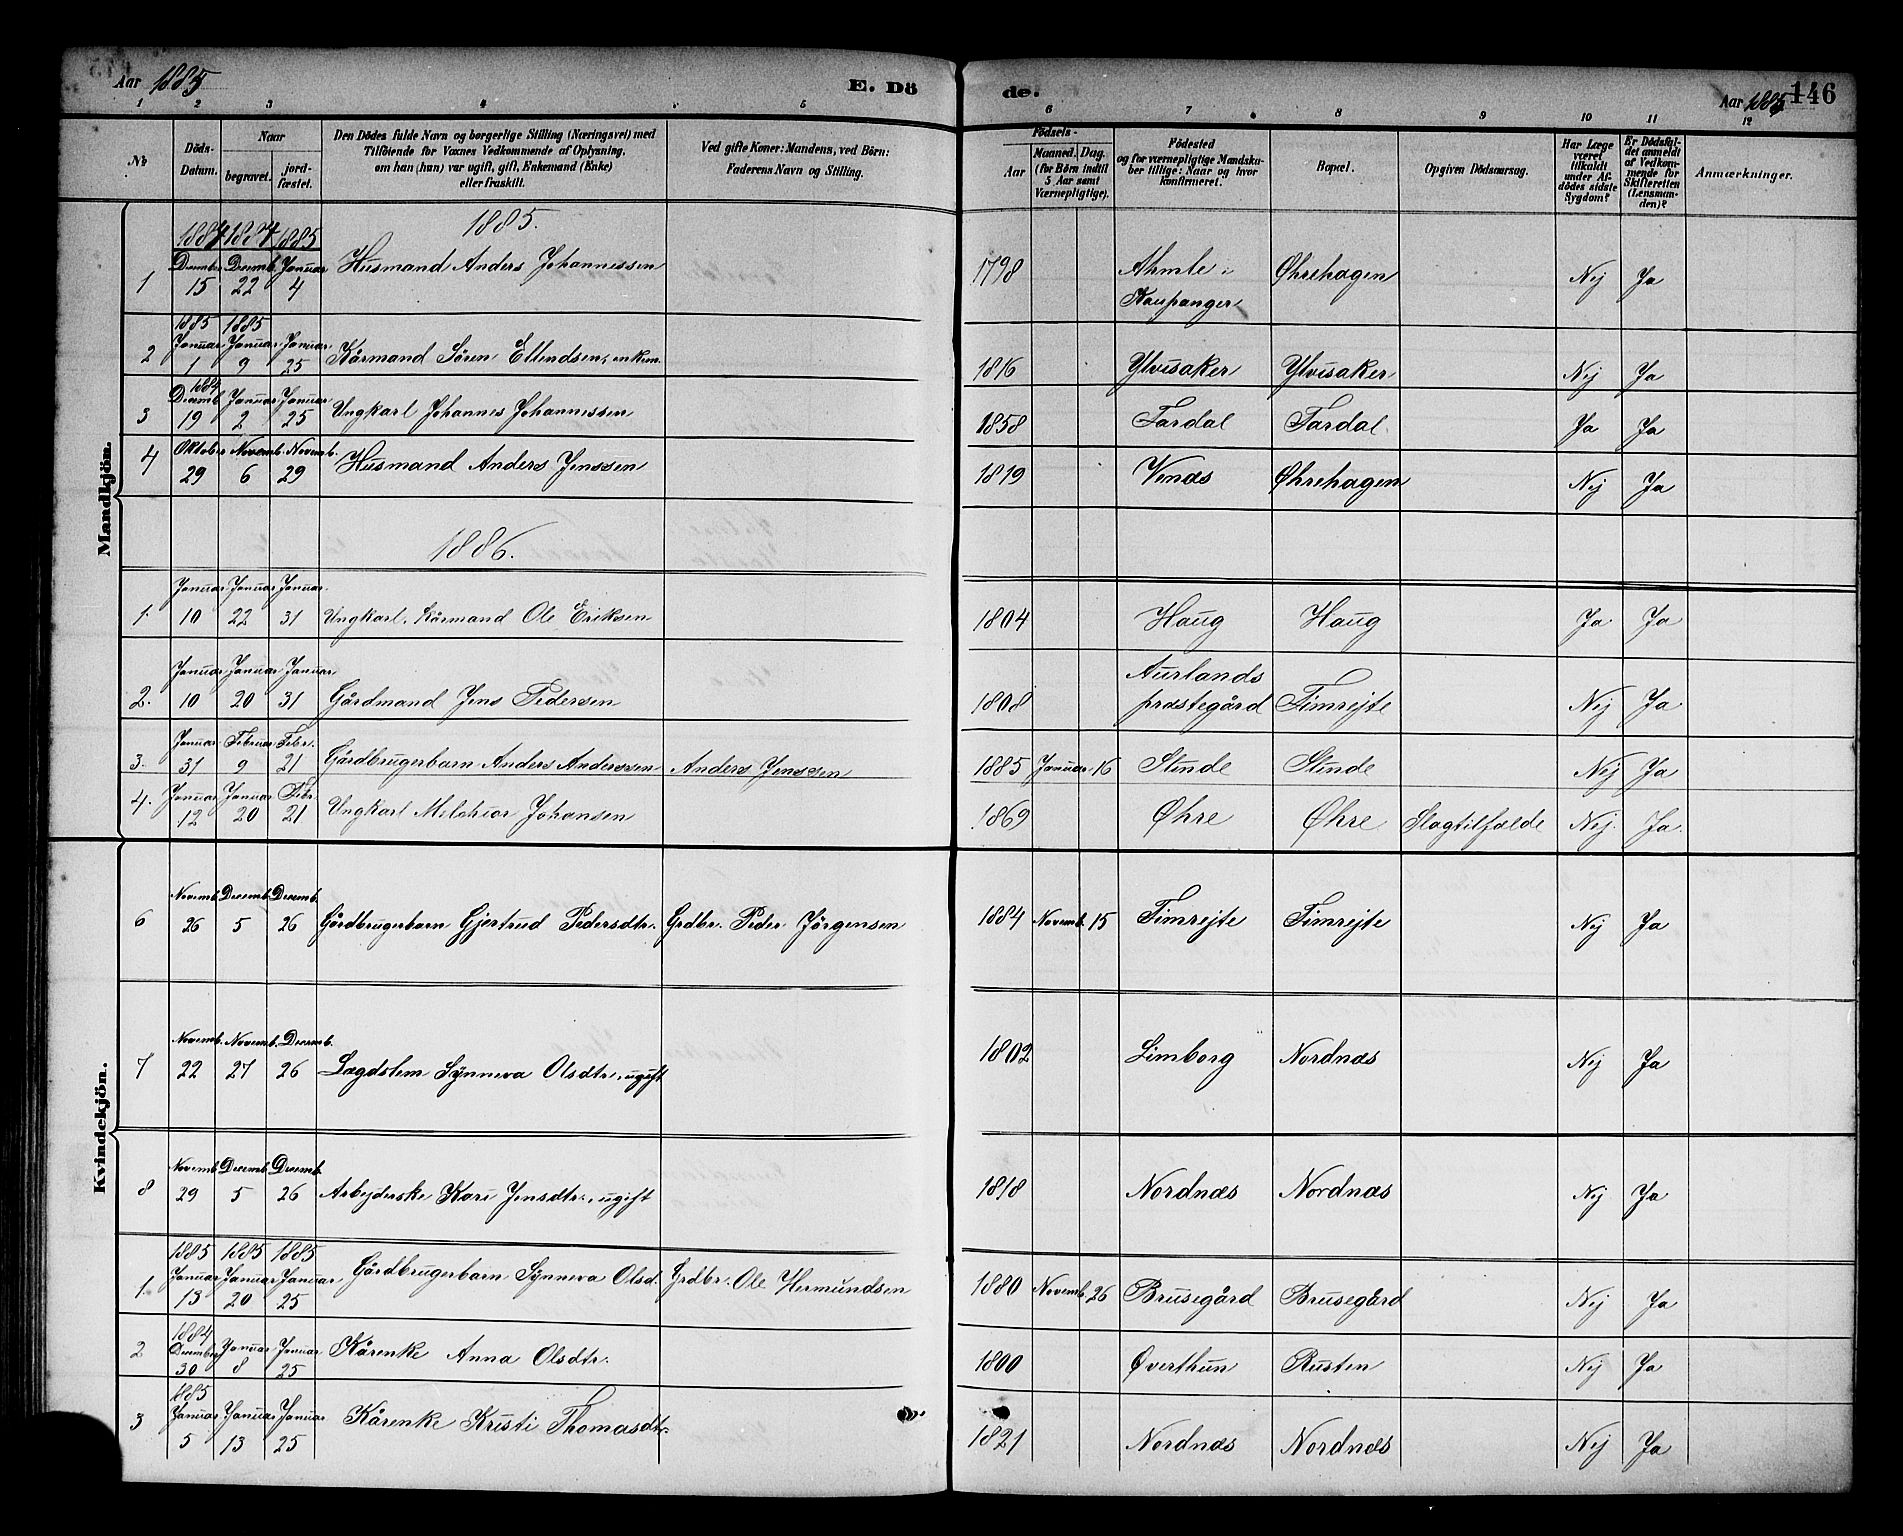 Aar 1885
E. Dö
de.
Aar 1885
146
1 2 3 4 5 6 7 8 9 10 11 12
No
Döds-Datum.
Naar
begravet.
jordfæstet.
Den Dödes fulde Navn og borgerlige Stilling (Næringsvei) med
Tilföiende for Voxnes Vedkommende af Oplysning,
om han (hun) var ugift, gift, Enkemand (Enke)
eller fraskilt.
Ved gifte Koner: Mandens, ved Börn:
Faderens Navn og Stilling.
Födsels-
Aar
Maaned. Dag.
(for Börn indtil
5 Aar samt
Værnepligtige).
Födested
og for værnepligtige Mandska-
ber tillige: Naar og hvor
konfirmeret.
Bopæl.
Opgiven Dödsaarsag.
Har Læge
været
tilkaldt
under Af-
dödes sidste
Sygdom?
Er Dödsfal-
det anmeldt
af Vedkom-
mende for
Skifteretten
(Lensman-
den)?
Anmærkninger.
Mandkjön.
1885.
1884 1884 1885
1 Decmber 15 Decmb. 22 Januar 4 Husmand Anders Johannessen 1798 Ahmle i Kaupanger Øhrehagen Nej Ja
1885 1885
2 Januar 1 Januar 9 Januar 25 Kårmand Sören Ellendsen, enkem. 1816 Ylvisaker Ylvisaker Nej Ja
1884
3 Decmb. 19 Januar 2 Januar 25 Ungkarl Johannes Johannessen 1858 Fardal Fardal. Ja Ja
4 Oktober 29 Novemb. 6 Novemb. 29 Husmand Anders Jenssen 1819 Venæs Øhrehagen Nej Ja
1886.
1. Januar 10 Januar 22 Januar 31 Ungkarl. Kårmand Ole Eriksen 1804 Haug Haug Ja Ja
2. Januar 10 Januar 20 Januar 31 Gårdmand Jens Pedersen 1808 Aurlands præstegård Fimrejte Nej Ja
3. Januar 31 Februar 9 Febr. 21 Gårdbrugerbarn Anders Anderssen Anders Jenssen 1885 Januar 16 Stende Stende Nej Ja
4. Januar 12 Januar 20 Febr 21 Ungkarl Melchior Johansen 1869 Øhre Øhre Slagtilfælde Nej. Ja.
Kvindekjön.
6 Novemb. 26 Decemb. 5 Decemb. 26 Gårdbrugerbarn Gjertrud Pedersdtr. Grdbr. Peder Jörgensen 1884 Novemb. 15 Fimrejte Fimrejte Nej Ja
7 Novemb. 22 Novemb. 27 Decemb. 26 Lægdslem Synneva Olsdtr., ugift 1802 Limborg Nordnæs Nej Ja
8 Novemb. 29 Decemb. 5 Decemb. 26 Arbejderske Kari Jensdtr., ugift 1818 Nordnæs Nordnæs Nej Ja
1885 1885 1885
1. Januar 13 Januar 20 Januar 25 Gårdbrugerbarn Synneva Olsd. Grdbr. Ole Hermundsen 1880 Novemb. 26 Brusegård Brusegård Nej Ja
1884
2 Decmber 30 Januar 8 Januar 25 Kårenke Anna Olsdtr. 1800 Øverthun Rusten Nej Ja
1885
3 Januar 5 Januar 13 Januar 25 Kårenke Kristi Thomasdtr. 1821 Nordnæs Nordnæs Nej Ja